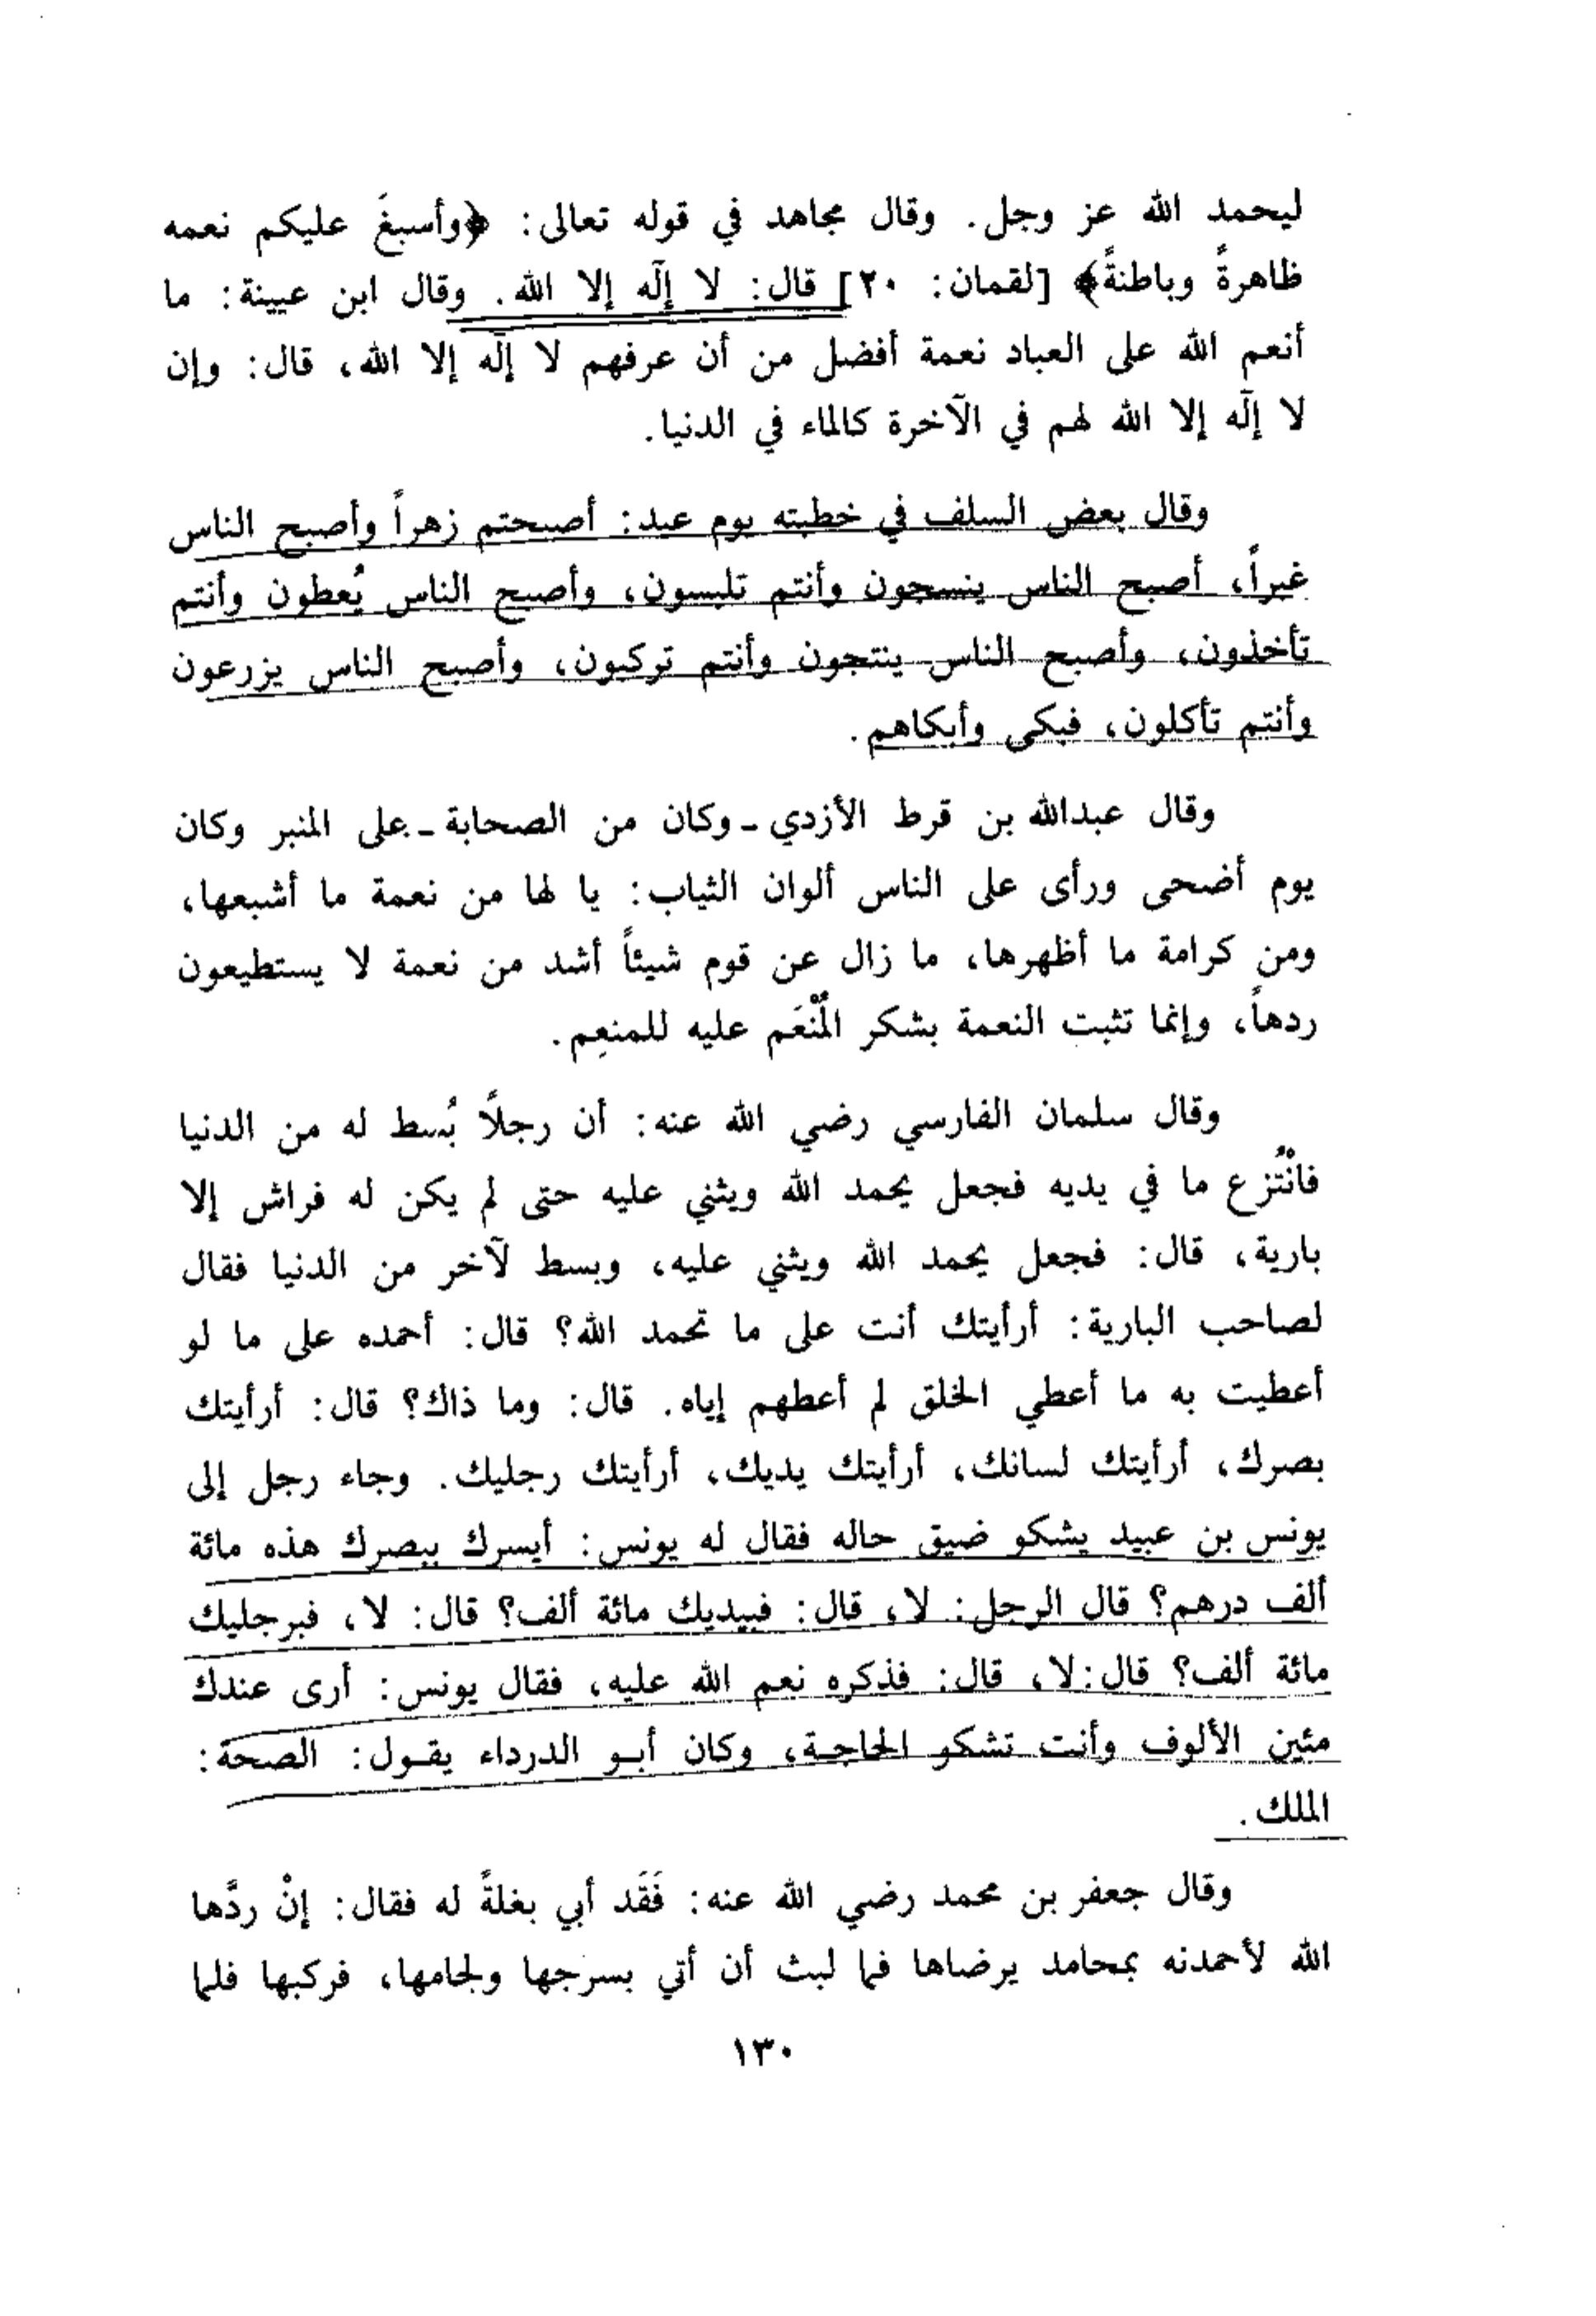 ليحمد الله عز وجل. وقال مجاهد في قوله تعالى: ﴿وأسبغَ عليكم نعمه
ظاهرةً وباطنةً﴾ [لقمان: ٢٠] قال: لا إلٓه إلا الله. وقال ابن عيينة: ما
أنعم الله على العباد نعمة أفضل من أن عرفهم لا إلٓه إلا الله، قال: وإن
لا إلٓه إلا الله لهم في الآخرة كالماء في الدنيا.
وقال بعض السلف في خطبته يوم عيد: أصبحتم زهراً وأصبح الناس
غبراً، أصبح الناس ينسجون وأنتم تلبسون، وأصبح الناس يُعطون وأنتم
تأخذون، وأصبح الناس ينتجون وأنتم تركبون، وأصبح الناس يزرعون
وأنتم تأكلون، فبكى وأبكاهم.
وقال عبدالله بن قرط الأزدي ـ وكان من الصحابة ـ على المنبر وكان
يوم أضحى ورأى على الناس ألوان الثياب: يا لها من نعمة ما أشبعها،
ومن كرامة ما أظهرها، ما زال عن قوم شيئاً أشد من نعمة لا يستطيعون
ردهاً، وإنما تثبت النعمة بشكر المُنْعَم عليه للمنعِم.
وقال سلمان الفارسي رضي الله عنه: أن رجلاً بُسط له من الدنيا
فانْتُزع ما في يديه فجعل يحمد الله ويثني عليه حتى لم يكن له فراش إلا
بارية، قال: فجعل يحمد الله ويثني عليه، وبسط لآخر من الدنيا فقال
لصاحب البارية: أرأيتك أنت على ما تحمد الله؟ قال: أحمده على ما لو
أعطيت به ما أعطي الخلق لم أعطهم إياه. قال: وما ذاك؟ قال: أرأيتك
بصرك، أرأيتك لسانك، أرأيتك يديك، أرأيتك رجليك. وجاء رجل إلى
يونس بن عبيد يشكو ضيق حاله فقال له يونس: أيسرك ببصرك هذه مائة
ألف درهم؟ قال الرجل: لا، قال: فبيديك مائة ألف؟ قال: لا، فبرجليك
مائة ألف؟ قال: لا، قال: فذكره نعم الله عليه، فقال يونس: أرى عندك
مئين الألوف وأنت تشكو الحاجة، وكان أبو الدرداء يقول: الصحة:
الملك.
وقال جعفر بن محمد رضي الله عنه: فَقَد أبي بغلةً له فقال: إنْ ردَّها
الله لأحمدنه بمحامد يرضاها فما لبث أن أتي بسرجها ولجامها، فركبها فلما
١٣٠